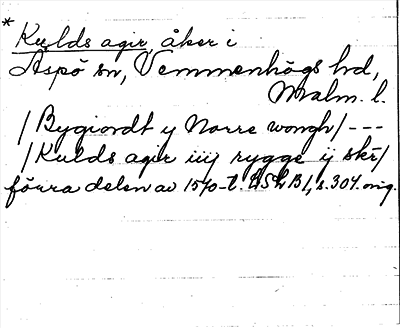 * Kulds agir, åker i
Äspö sn, Vemmenhögs hd,
Malm. l.
/ Bygiordt y Norre wongh / ---
/ Kulds agir iiij rygge ij skr /
förra delen av 1570-t. s. 304. orig.